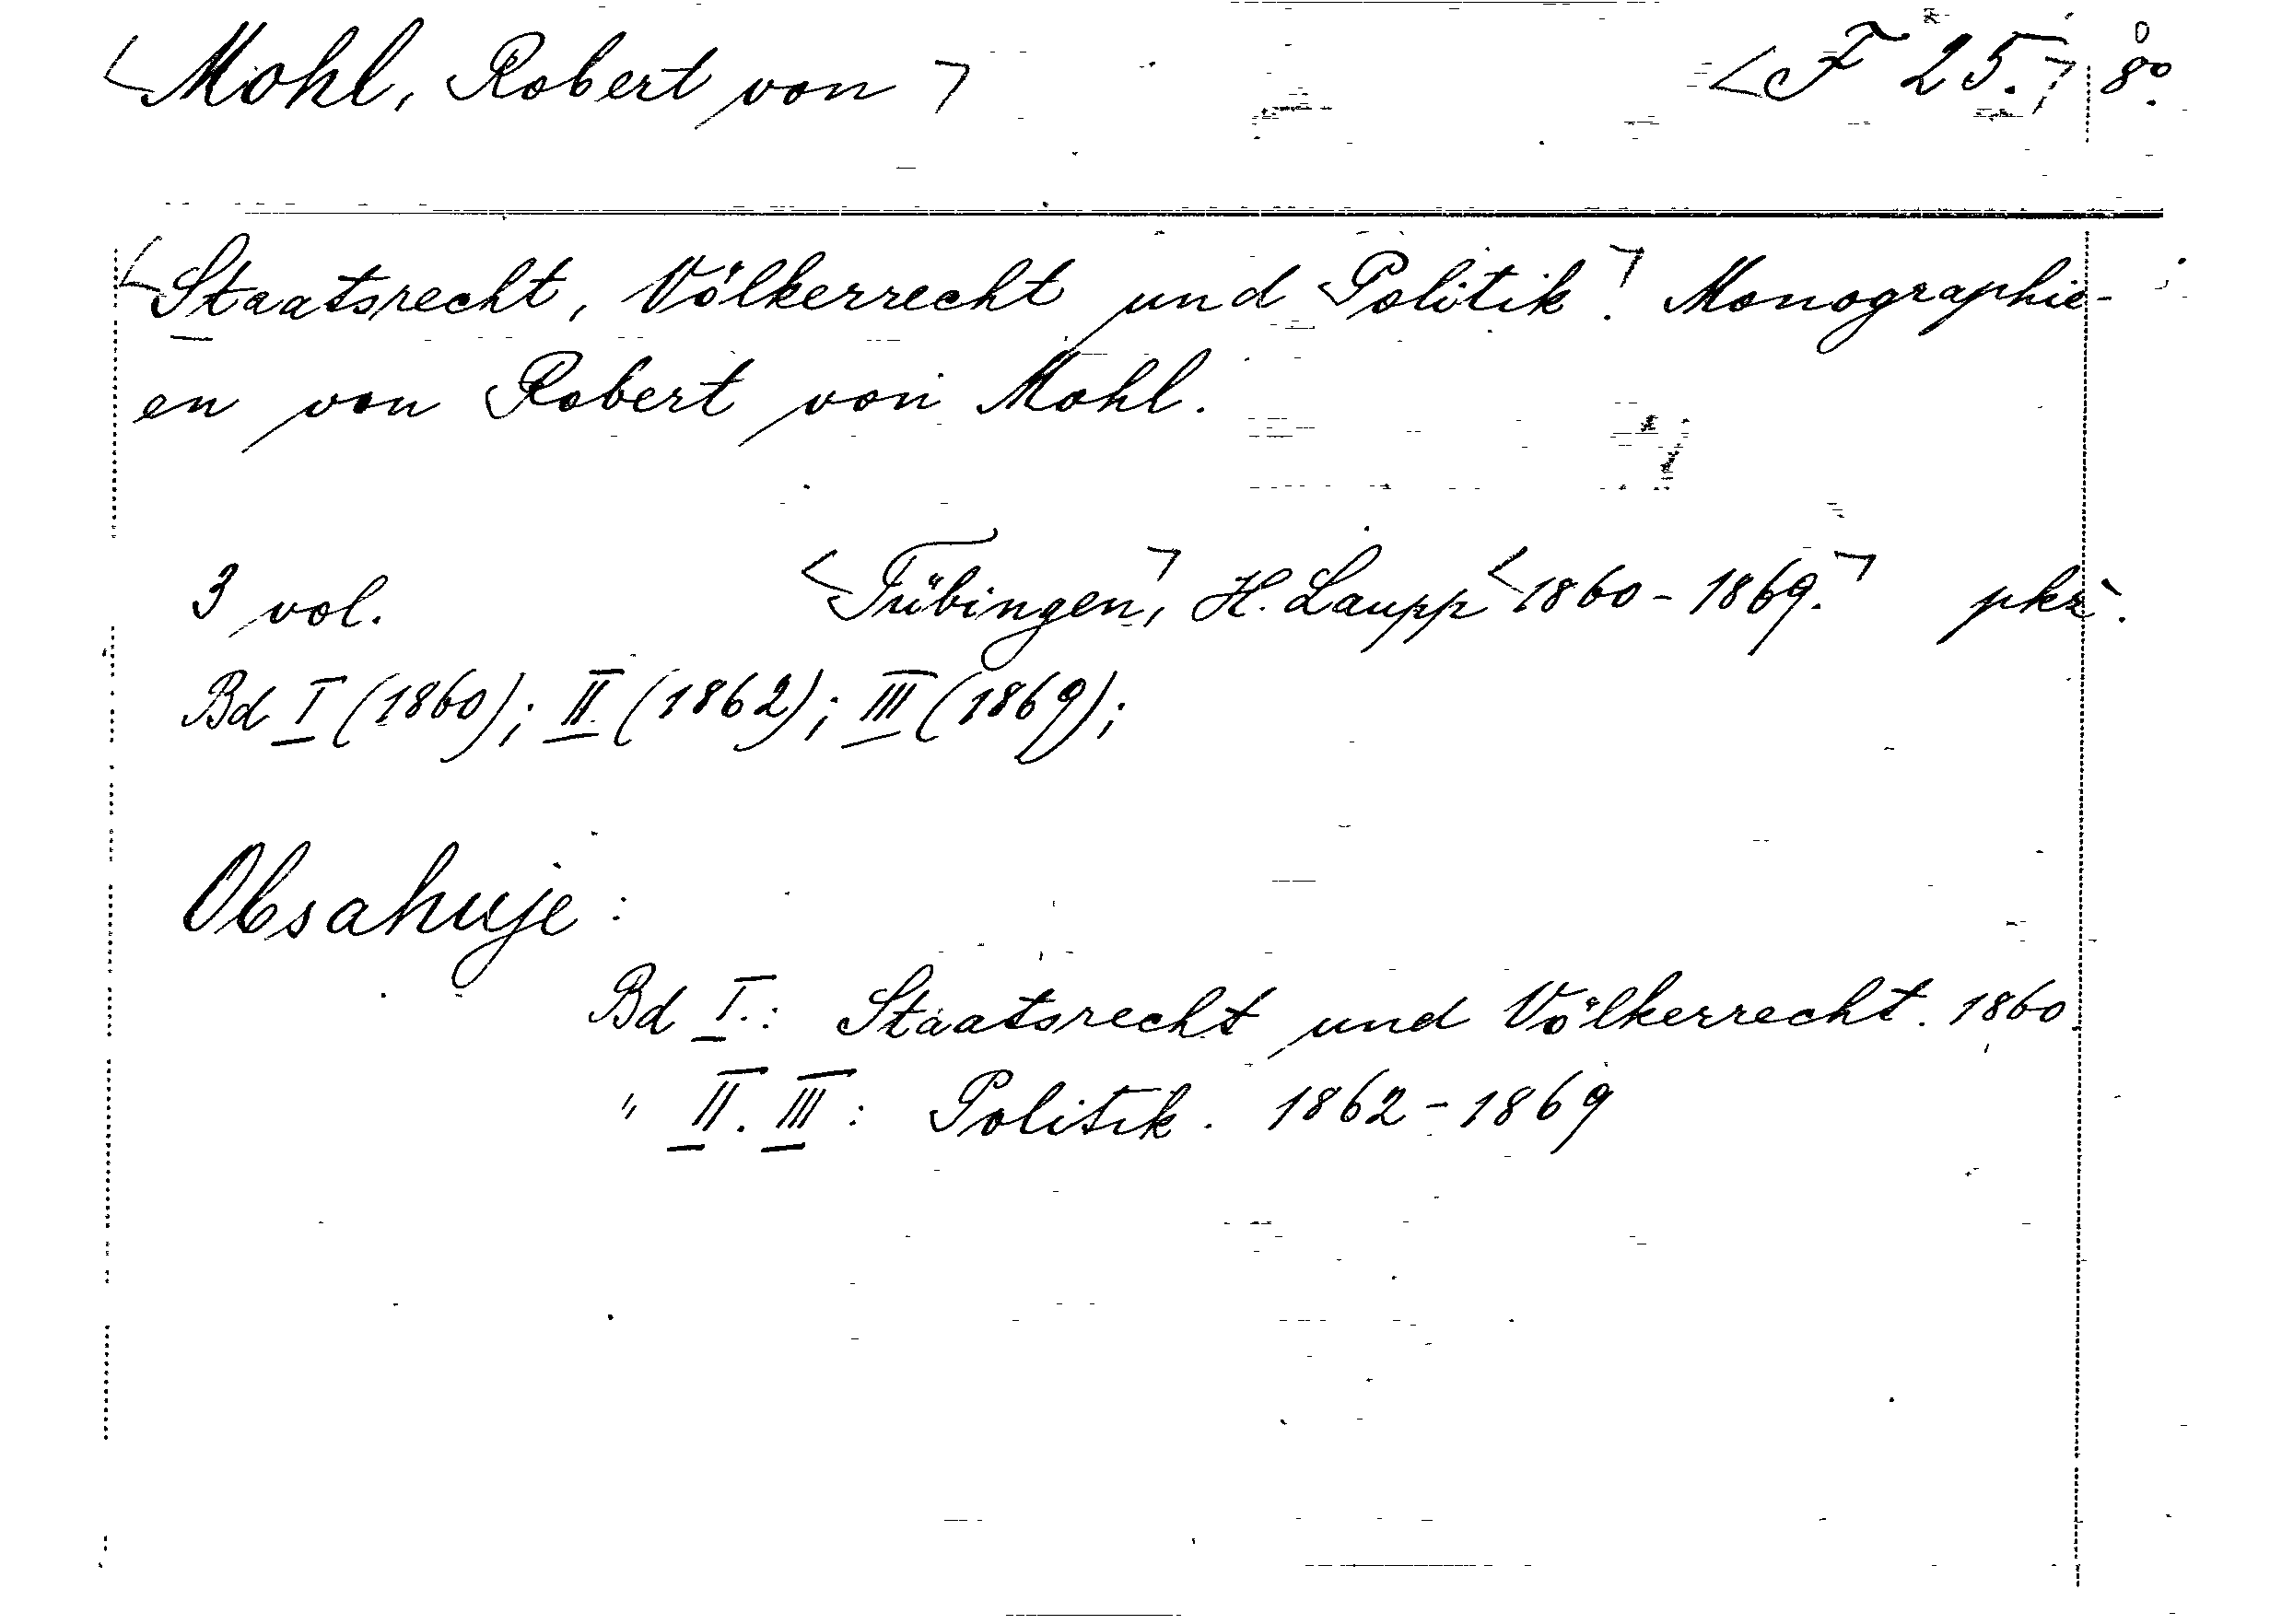 Mohl, Robert von F 25. 8°.
Staatsrecht, Völkerrecht und Politik. Monographie-
en von Robert von Mohl.
3 vol. Tübingen, H. Laupp 1860-1869. pkř.
Bd I (1860); II (1862); III (1869);
Obsahuje:
Bd I.: Staatsrecht und Völkerrecht. 1860.
" II. III: Politik. 1862-1869